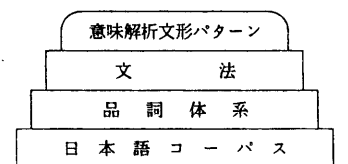 意味解析文形パターン
文法
品詞体系
日本語コーパス